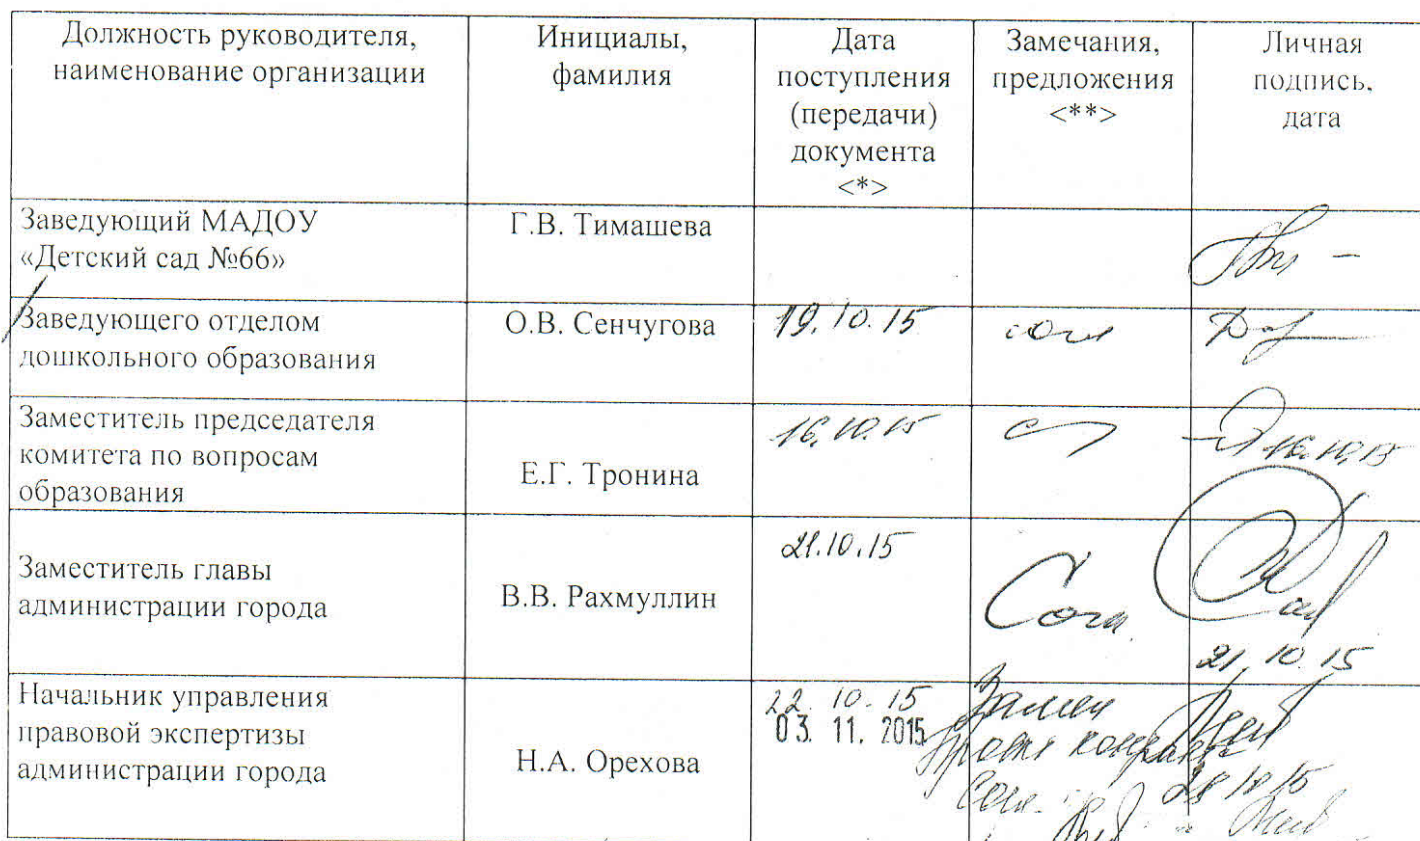 Должность руководителя,
наименование организации
Инициалы,
фамилия
Дата
поступления
(передачи)
документа
<*>
Замечания,
предложения
<**>
Личная
подпись,
дата
Заведующий МАДОУ
«Детский сад №66»
Г.В. Тимашева
Заведующего отделом
дошкольного образования
О.В. Сенчугова
19.10.15
согл
Заместитель председателя
комитета по вопросам
образования
Е.Г. Тронина
16.10.15
16.10.15
Заместитель главы
администрации города
В.В. Рахмуллин
21.10.15
Согл.
21.10.15
Начальник управления
правовой экспертизы
администрации города
Н.А. Орехова
22.10.15
03. 11. 2015
Согл.
28.10.15